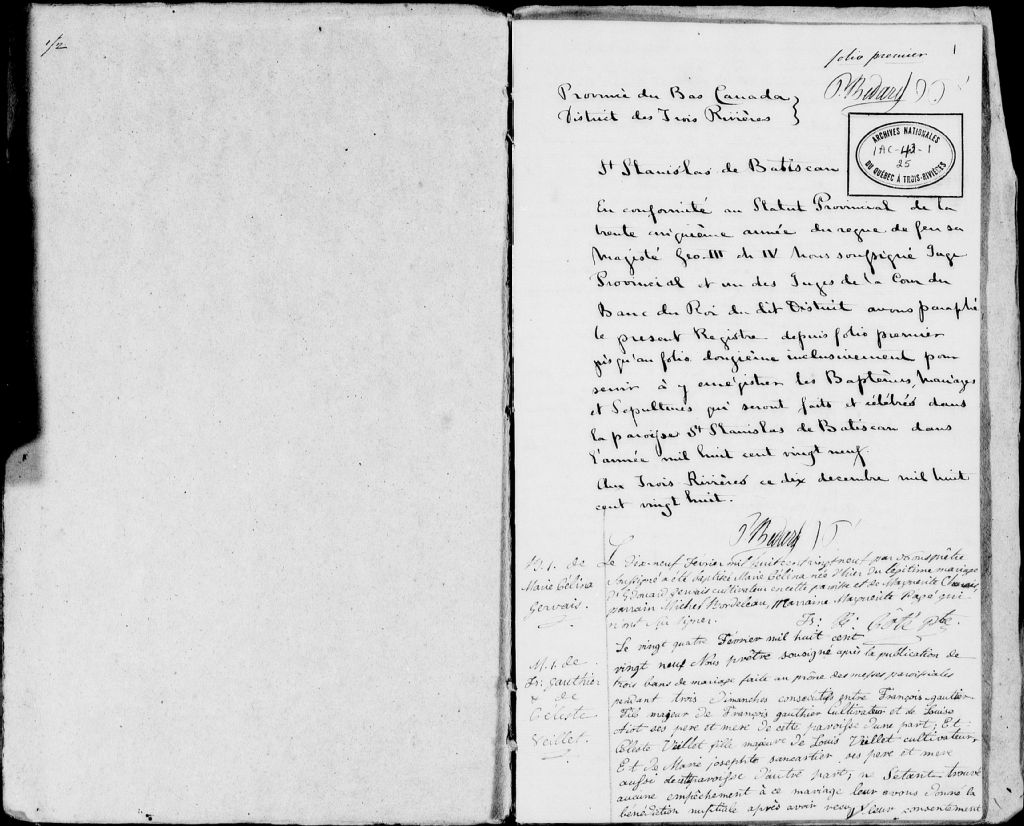 1/2
folio premier
1
P. Bedard
Province du Bas Canada }
District des Trois Rivières
ARCHIVES NATIONALES
1AC-43-1
25
DU QUÉBEC À TROIS-RIVIÈRES
St Stanislas de Batiscan
En conformité au Statut Provincial de la
trente cinquième année du regne de feu sa
Majesté Geo. III ch IV Nous soussigné Juge
Provincial et un des Juges de la Cour du
Banc du Roi du dit District avons paraphé
le present Registre depuis folio premier
jusqu'au folio inclusivement pour
servir à y enrégistrer les Baptêmes, Mariages
et Sepultures qui seront faits et célébrés dans
la paroisse St Stanislas de Batiscan dans
l'année mil huit cent vingt neuf.
Aux Trois Rivières ce dix decembre mil huit
cent vingt huit.
P. Bedard
B. 1. de
Marie Célina
Gervais.
Le dix-neuf Février mil huit cent vingt neuf par nous prêtre
soussigné a été baptisé Marie Célina née d'hier du légitime mariage
d'Edouard Gervais cultivateur en cette paroisse et de Marguerite
parrain Michel Bordeleau, Marraine Marguerite Papé qui
n'ont su signer. Fr: Côté ptre.
M. 1. de
Fr: Gauthier
& de
Céleste
Veillet.
Le vingt quatre Février mil huit cent
vingt neuf Nous prêtre sousigné après la publication de
trois bans de mariage faite au prône des messes paroissiales
pendant trois Dimanches consecutifs entre François gaultier
Fils majeur de François gauthier Cultivateur et de Louise
ses pere et mere de cette paroisse d'une part; Et
Céleste Veillet fille majeure de Louis Veillet cultivateur,
Et de Marie josephte sancartier ses pere et mere
aussi de cette paroisse d'autre part; ne s'étant trouvé
aucune empêchement à ce mariage leur avons donné la
bénédiction nuptiale après avoir reçu leur consentement